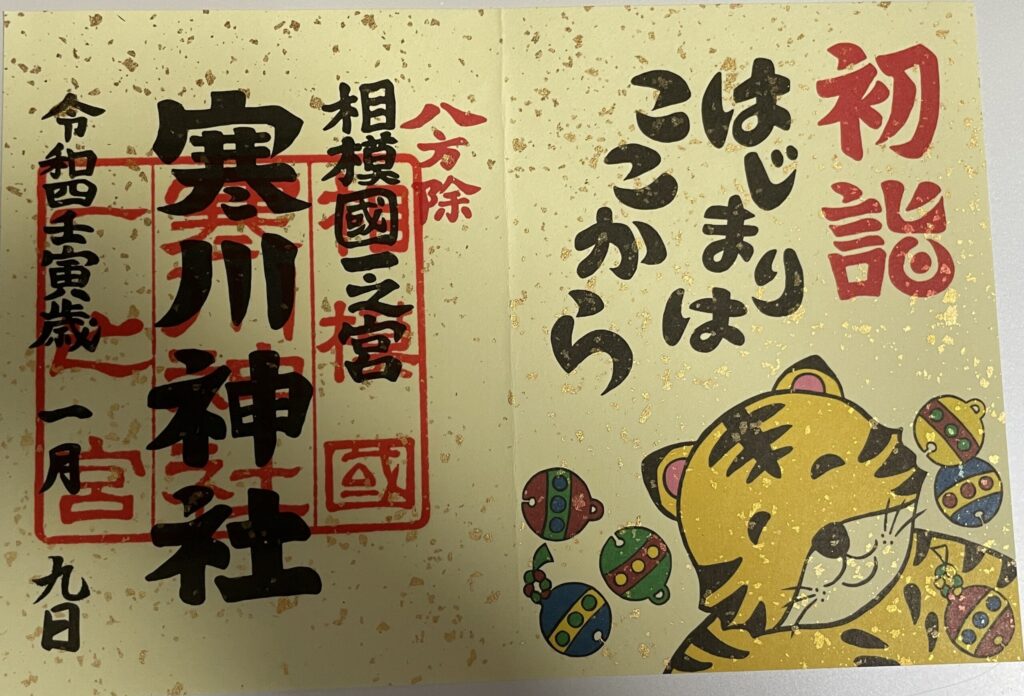 初詣
はじまりは
ここから
八方除
相模國一之宮
寒川神社
令和四壬寅歳 一月 九日
相模國
寒川神社
一之宮